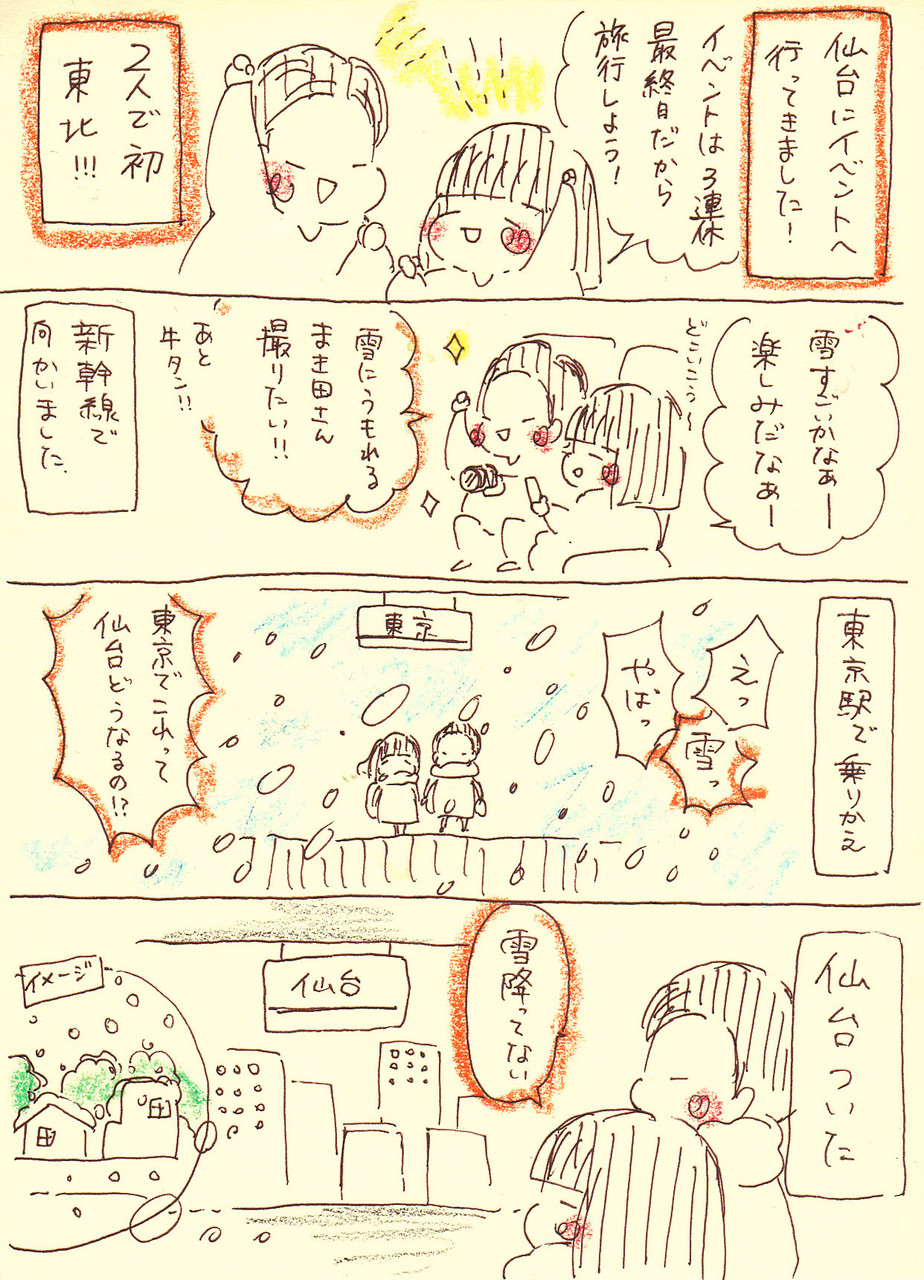 仙台にイベントへ
行ってきました!
イベントは3連休
最終日だから
旅行しよう!
2人で初
東北!!!
雪すごいかなぁー
楽しみだなぁー
どこいこう〜
雪にうもれる
まき田さん
撮りたい!!
あと
牛タン!!
新幹線で
向かいました。
東京駅で乗りかえ
えっ
雪っ
やばっ
東京
東京でこれって
仙台どうなるの!?
仙台ついた
雪降ってない
仙台
イメージ